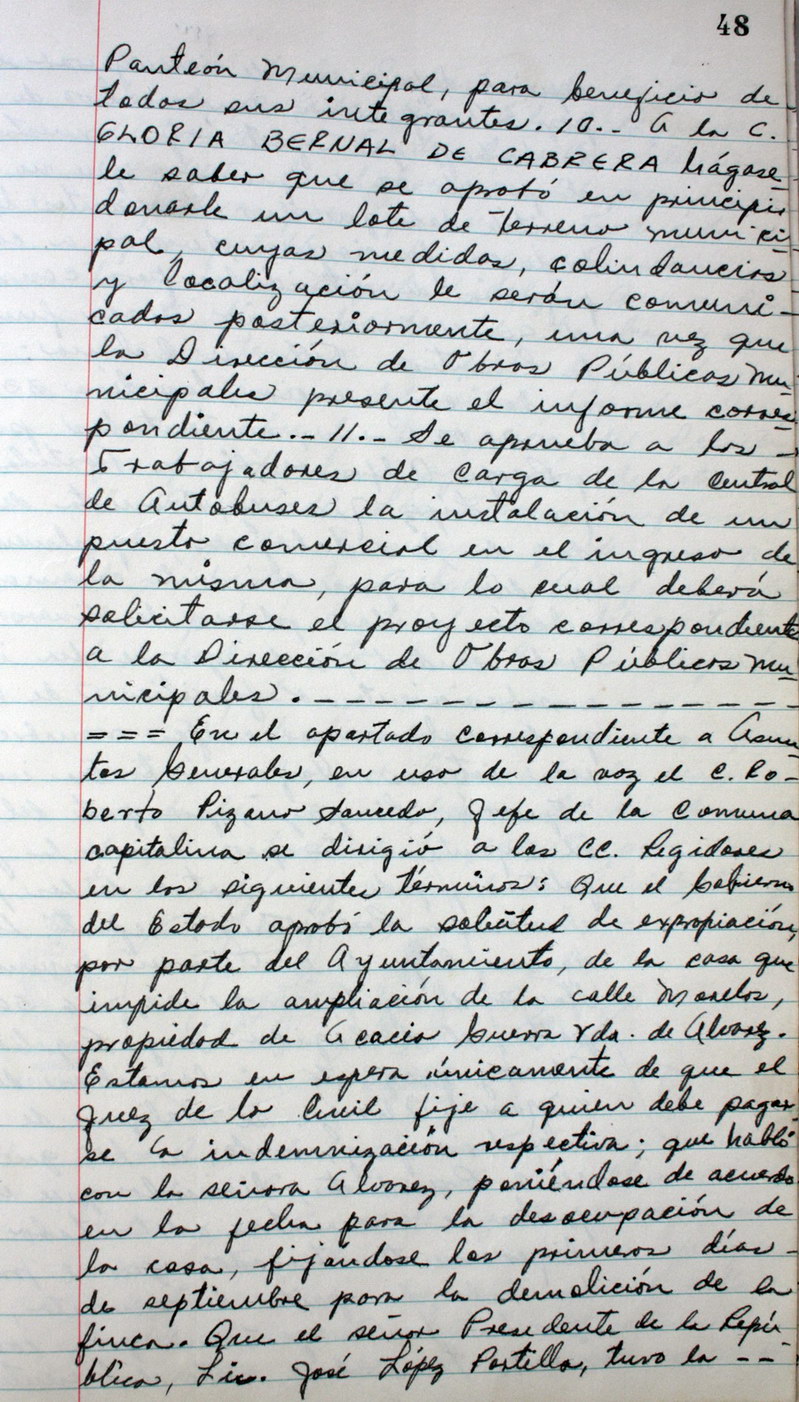 48
Panteón Municipal, para beneficio de
todos sus integrantes. 10.- A la C.
GLORIA BERNAL DE CABRERA hágase
le saber que se aprobó en principio
donarle un lote de terreno munici
pal, cuyas medidas, colindancias
y localización le serán comuni-
cadas posteriormente, una vez que
la Dirección de Obras Públicas Mu
nicipales presente el informe corres
pondiente.- 11.- Se aprueba a los -
Trabajadores de Carga de la Central
de Autobuses la instalación de un
puesto comercial en el ingreso de
la misma, para lo cual deberá
solicitarse el proyecto correspondiente
a la Dirección de Obras Públicas Mu
nicipales. - - - - - - - - - - - - - - - - -
= = = En el apartado correspondiente a Asun
tos Generales, en uso de la voz el C. Ro-
berto Pizano Saucedo, Jefe de la Comuna
capitalina se dirigió a los CC. Regidores
en los siguientes términos: Que el Gobierno
del Estado aprobó la solicitud de expropiación,
por parte del Ayuntamiento, de la casa que
impide la ampliación de la calle Morelos,
propiedad de Acacia Guerra Vda. de Alvarez.
Estamos en espera únicamente de que el
Juez de lo Civil fije a quien debe pagar
se la indemnización respectiva; que habló
con la señora Alvarez, poniéndose de acuerdo
en la fecha para la desocupación de
la casa, fijándose los primeros días -
de septiembre para la demolición de la
finca. Que el señor Presidente de la Repú
blica, Lic. José López Portillo, tuvo la - -